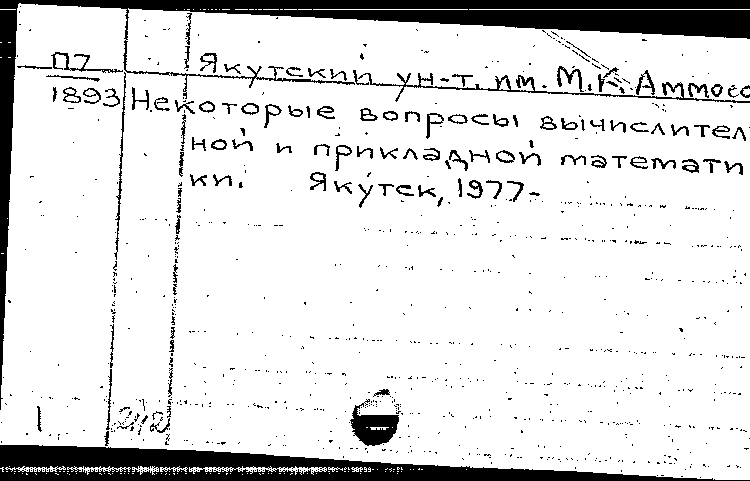 П7 Якутский ун-т. им. М.К. Аммосо
1893 Некоторые вопросы вычислител
ной и прикладной математи
ки. Якутск, 1977-
1 242